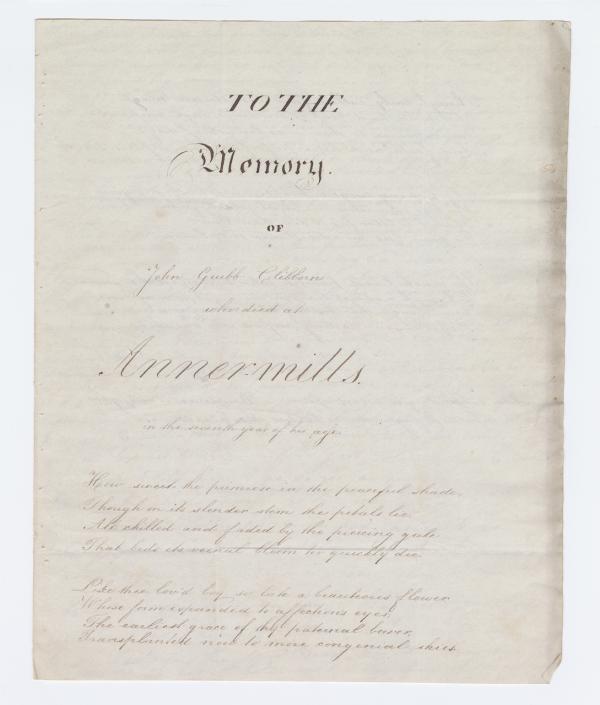 TO THE
Memory.
OF
John Grubb Clibborn
who died at
Annermills.
in the seventh year of his age.
How sweet the primrose in the peaceful shade,
Though on its slender stem the petals lie
All chilled and faded by the piercing gale
That bids its vernal bloom so quickly die
Like thee lov'd boy so late a beauteous flower
Whose form expanded to affections eyes,
The earliest grace of thy paternal bower,
Transplanted now to more congenial skies